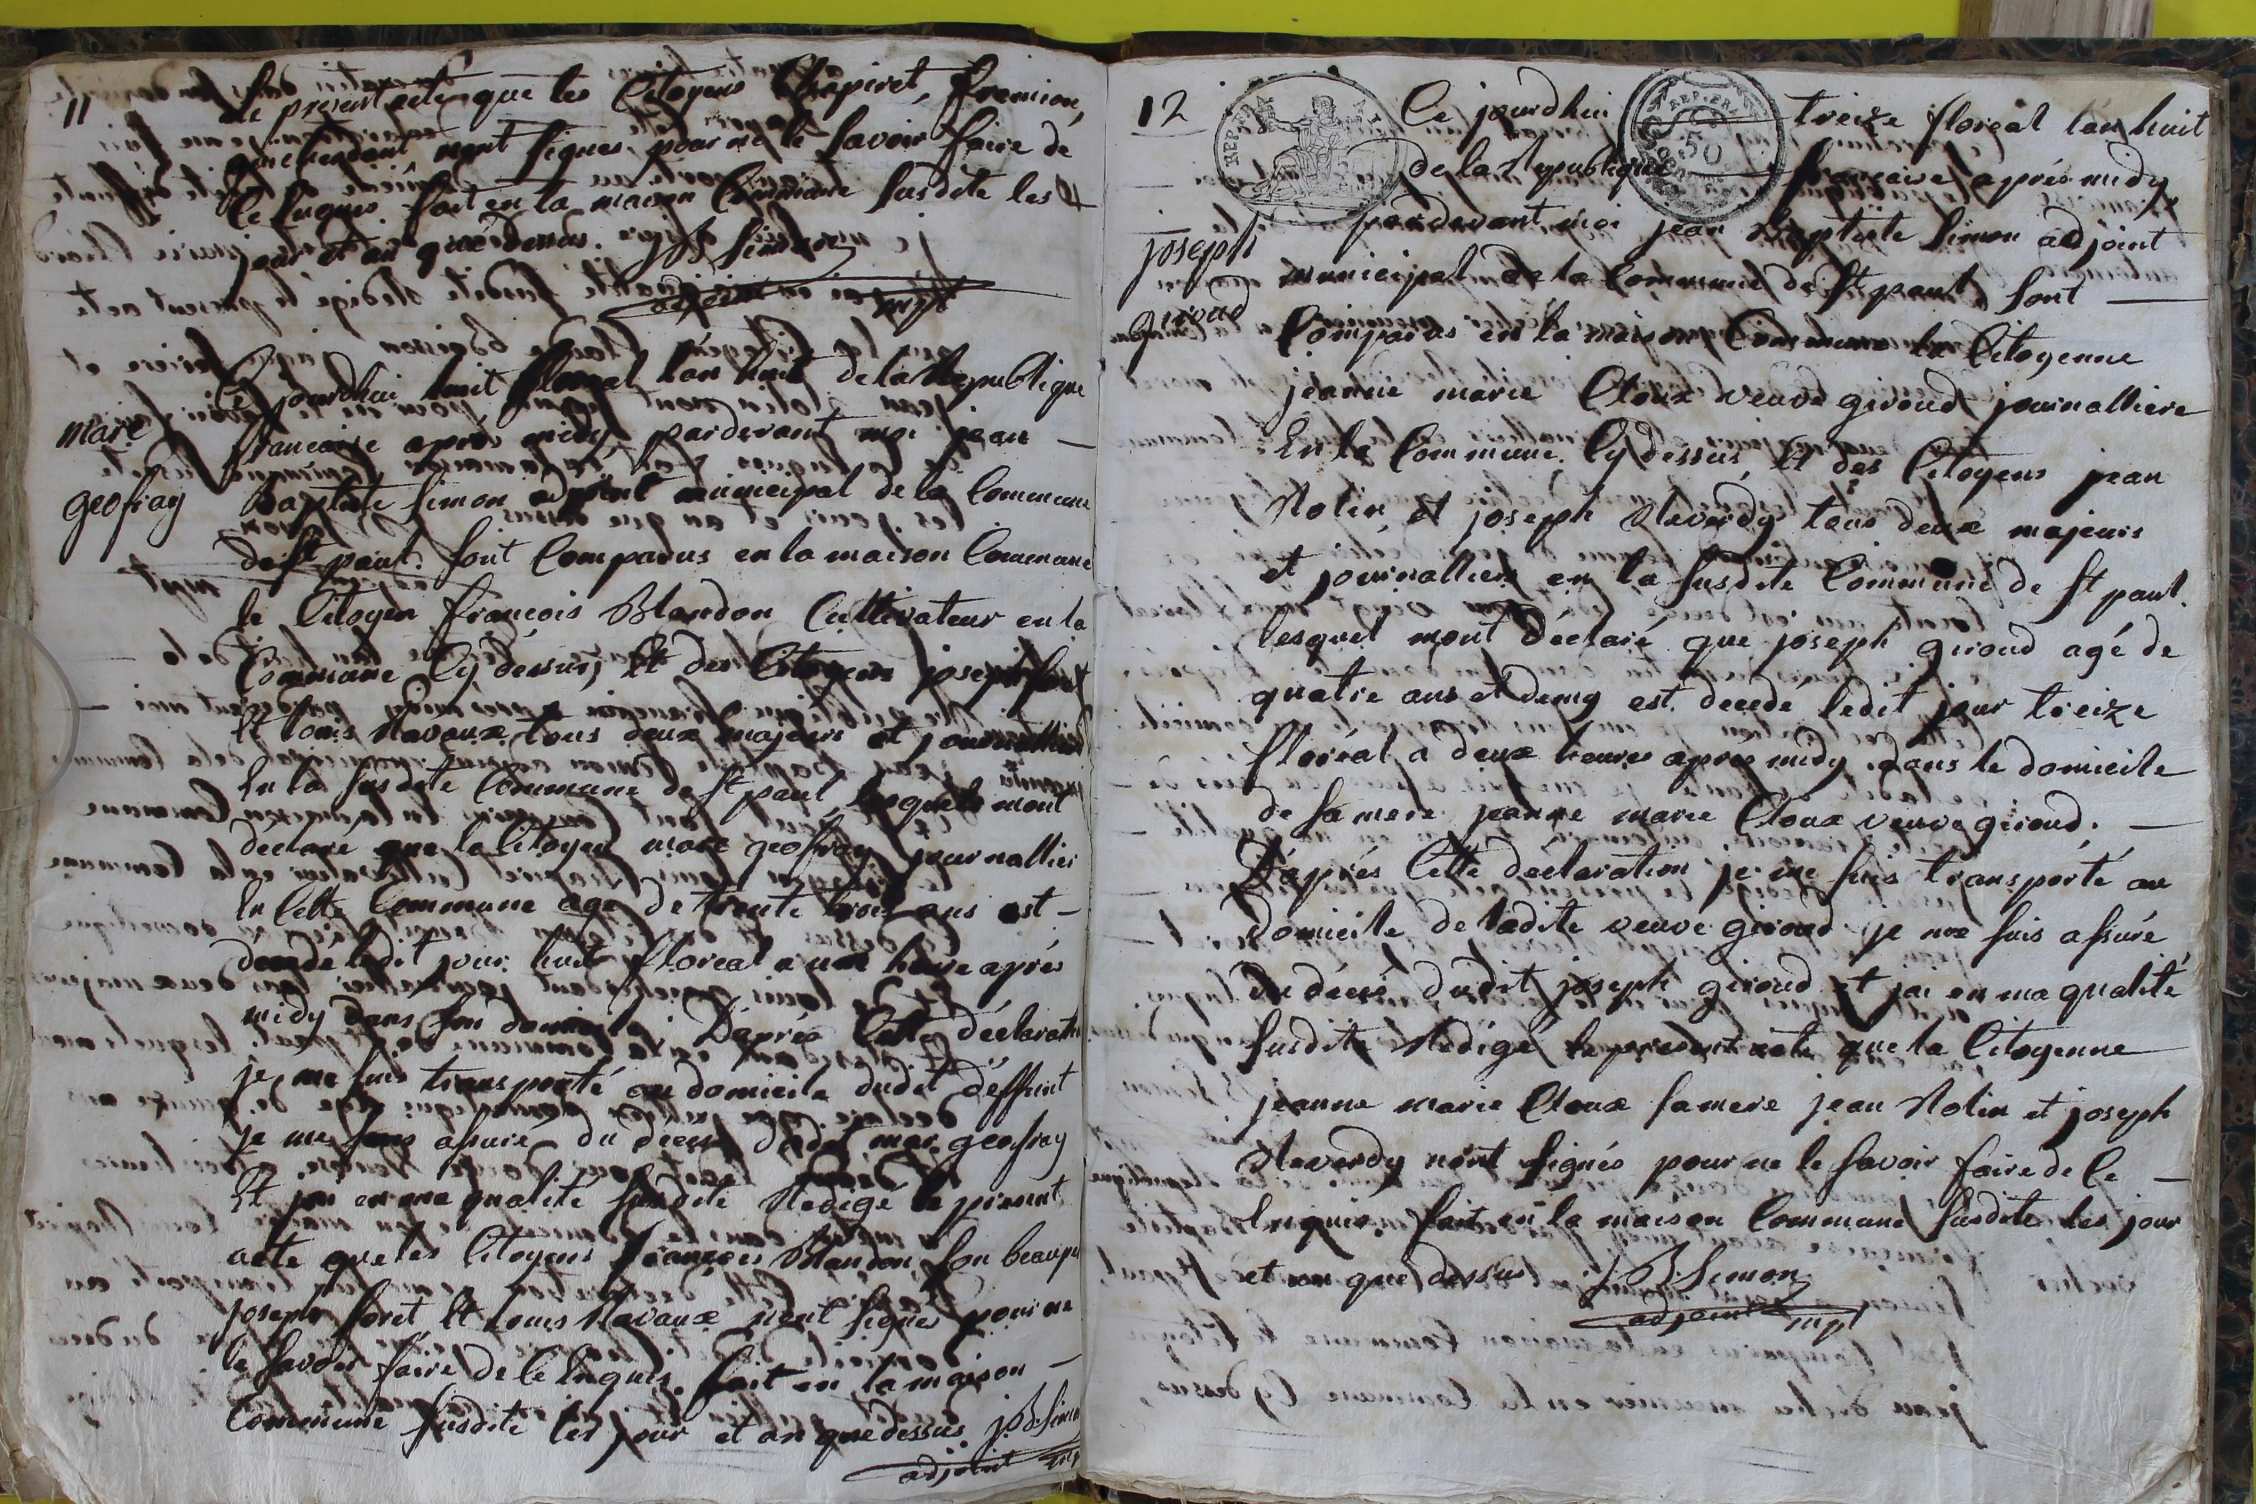 11
le present acte que les Citoyens Chapiret, fremion,
guichardant nont signes pour ne le savoir faire de
ce enquis. fait en la maison Commune susdite les
jour et an que dessus. JB Simon
adjoint mpl
Ce jourdhui huit floreal lan huit de la Republique
marc
francaise apres midy pardevant moi jean
geofray
Baptiste Simon adjoint municipal de la Commune
de St paul. sont Comparus en la maison Commune
le Citoyen françois Blandon Cultivateur en la
Commune Cy dessus, Et des Citoyens joseph foret
Et louis Ravaux tous deux majeurs et journalliers
En la susdite Commune de St paul, lesquels mont
declare que le Citoyen marc geofray journallier
En Cette Commune age de trente trois ans est
decede ledit jour huit floreal a une heure après
midy dans son domicile. D'après Cette déclaration
je me suis transporté au domicile dudit déffunt
je me suis assuré du décès dudit marc geofray
Et jai en ma qualité susdite Redigé le present
acte que les Citoyens françois Blandon son beaupere
joseph foret Et louis Ravaux nont signes pour ne
le savoir faire de Ce Enquis. fait en la maison
Commune susdite les jour et an que dessus. JB Simon
adjoint mpl
12
REP. FRA.
Ce jourdhui treize floreal lan huit
REP. FR.
50
de la Republique francaise après midy
joseph
pardevant moi jean Baptiste Simon adjoint
giroud
municipal de la Commune de St paul, sont
Comparus en la maison Commune la Citoyenne
jeanne marie Cloux veuve giroud journalliere
En la Commune Cy dessus, Et des Citoyens jean
Rolin et joseph Reverdy tous deux majeurs
et journalliers en la susdite Commune de St paul.
lesquel mont déclaré que joseph giroud agé de
quatre ans et demy est decedé ledit jour treize
floréal a deux heures après midy dans le domicile
de sa mere jeanne marie Cloux veuve giroud.
D'après Cette déclaration je me suis transporté au
domicile de ladite veuve giroud je me suis assuré
du décès dudit joseph giroud et jai en ma qualité
susdite Redigé le present acte que la Citoyenne
jeanne marie Cloux sa mere jean Rolin et joseph
Reverdy nont signés pour ne le savoir faire de Ce
Enquis. fait en la maison Commune susdite les jour
et an que dessus JB. Simon
adjoint mpl